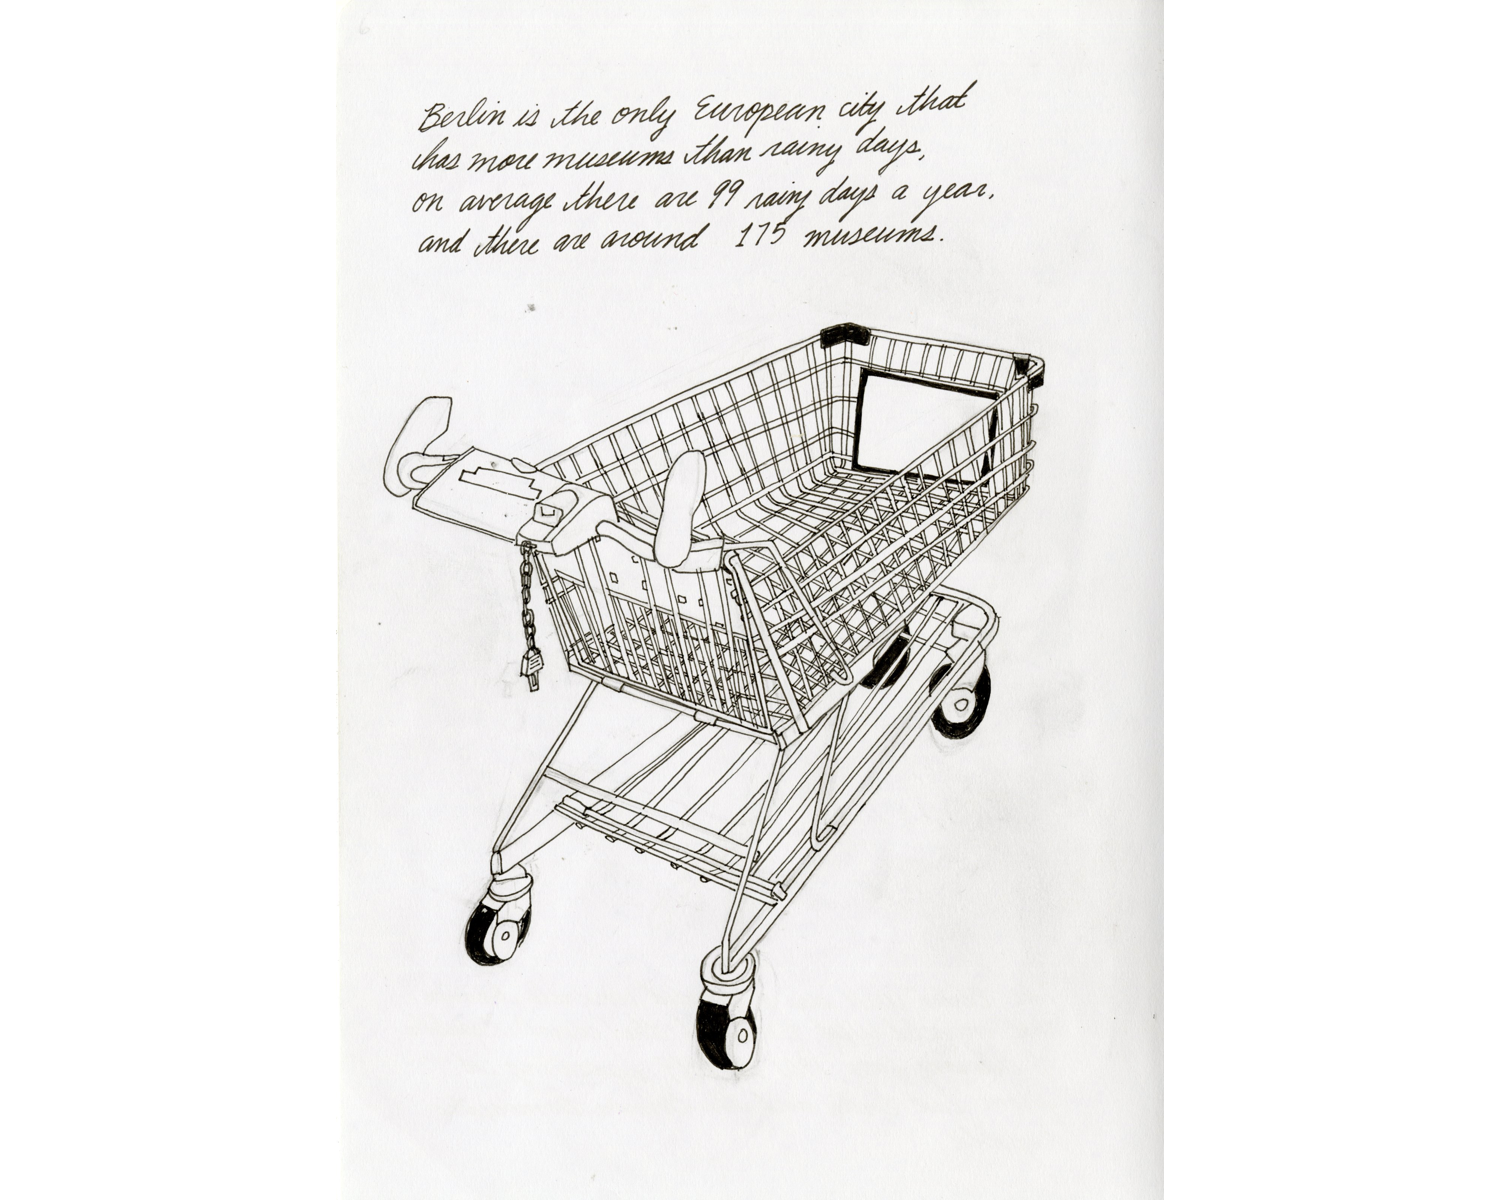 Berlin is the only European city that
has more museums than rainy days,
on average there are 99 rainy days a year,
and there are around 175 museums.